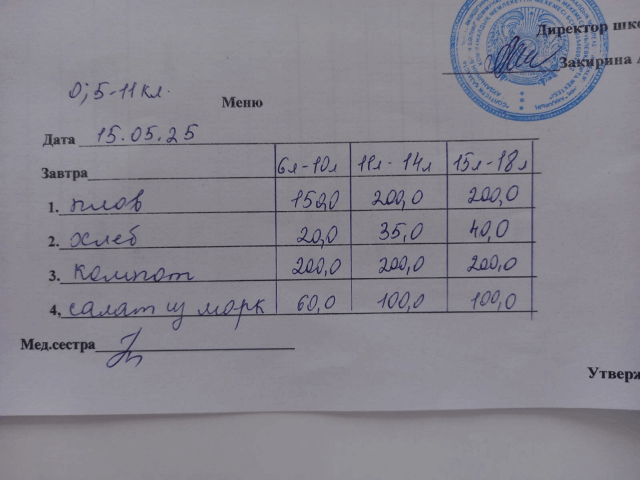 Директор шко
Закирина А
0; 5-11 кл.
Меню
Дата 15.05.25
Завтра 6л-10л 11л-14л 15л-18л
1. плов 150,0 200,0 200,0
2. хлеб 20,0 35,0 40,0
3. компот 200,0 200,0 200,0
4. салат из морк 60,0 100,0 100,0
Мед.сестра
Утверж